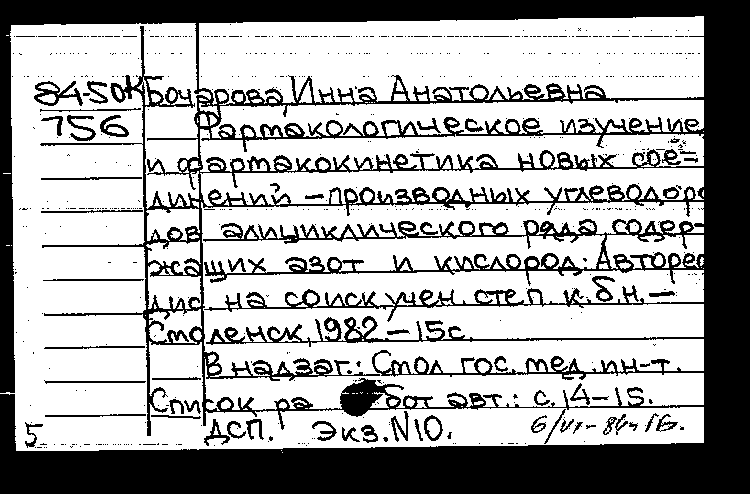 84-50К Бочарова, Инна Анатольевна
756 Фармакологическое изучение
и фармакокинетика новых сое=
динений – производных углеводоро
дов алициклического ряда, содер-
жащих азот и кислород: Авторед
дис. на соиск учен. степ. к.б.н. –
Смоленск, 1982. – 15с.
В надзаг.: Смол. гос. мед. ин-т.
Список работ авт.: с. 14–15.
ДСП. Экз. N10.
5